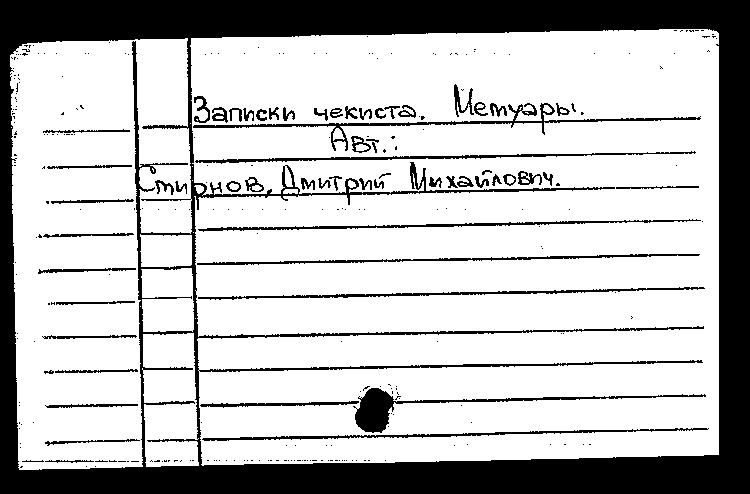 Записки чекиста. Мемуары.
Авт.:
Смирнов, Дмитрий Михайлович.